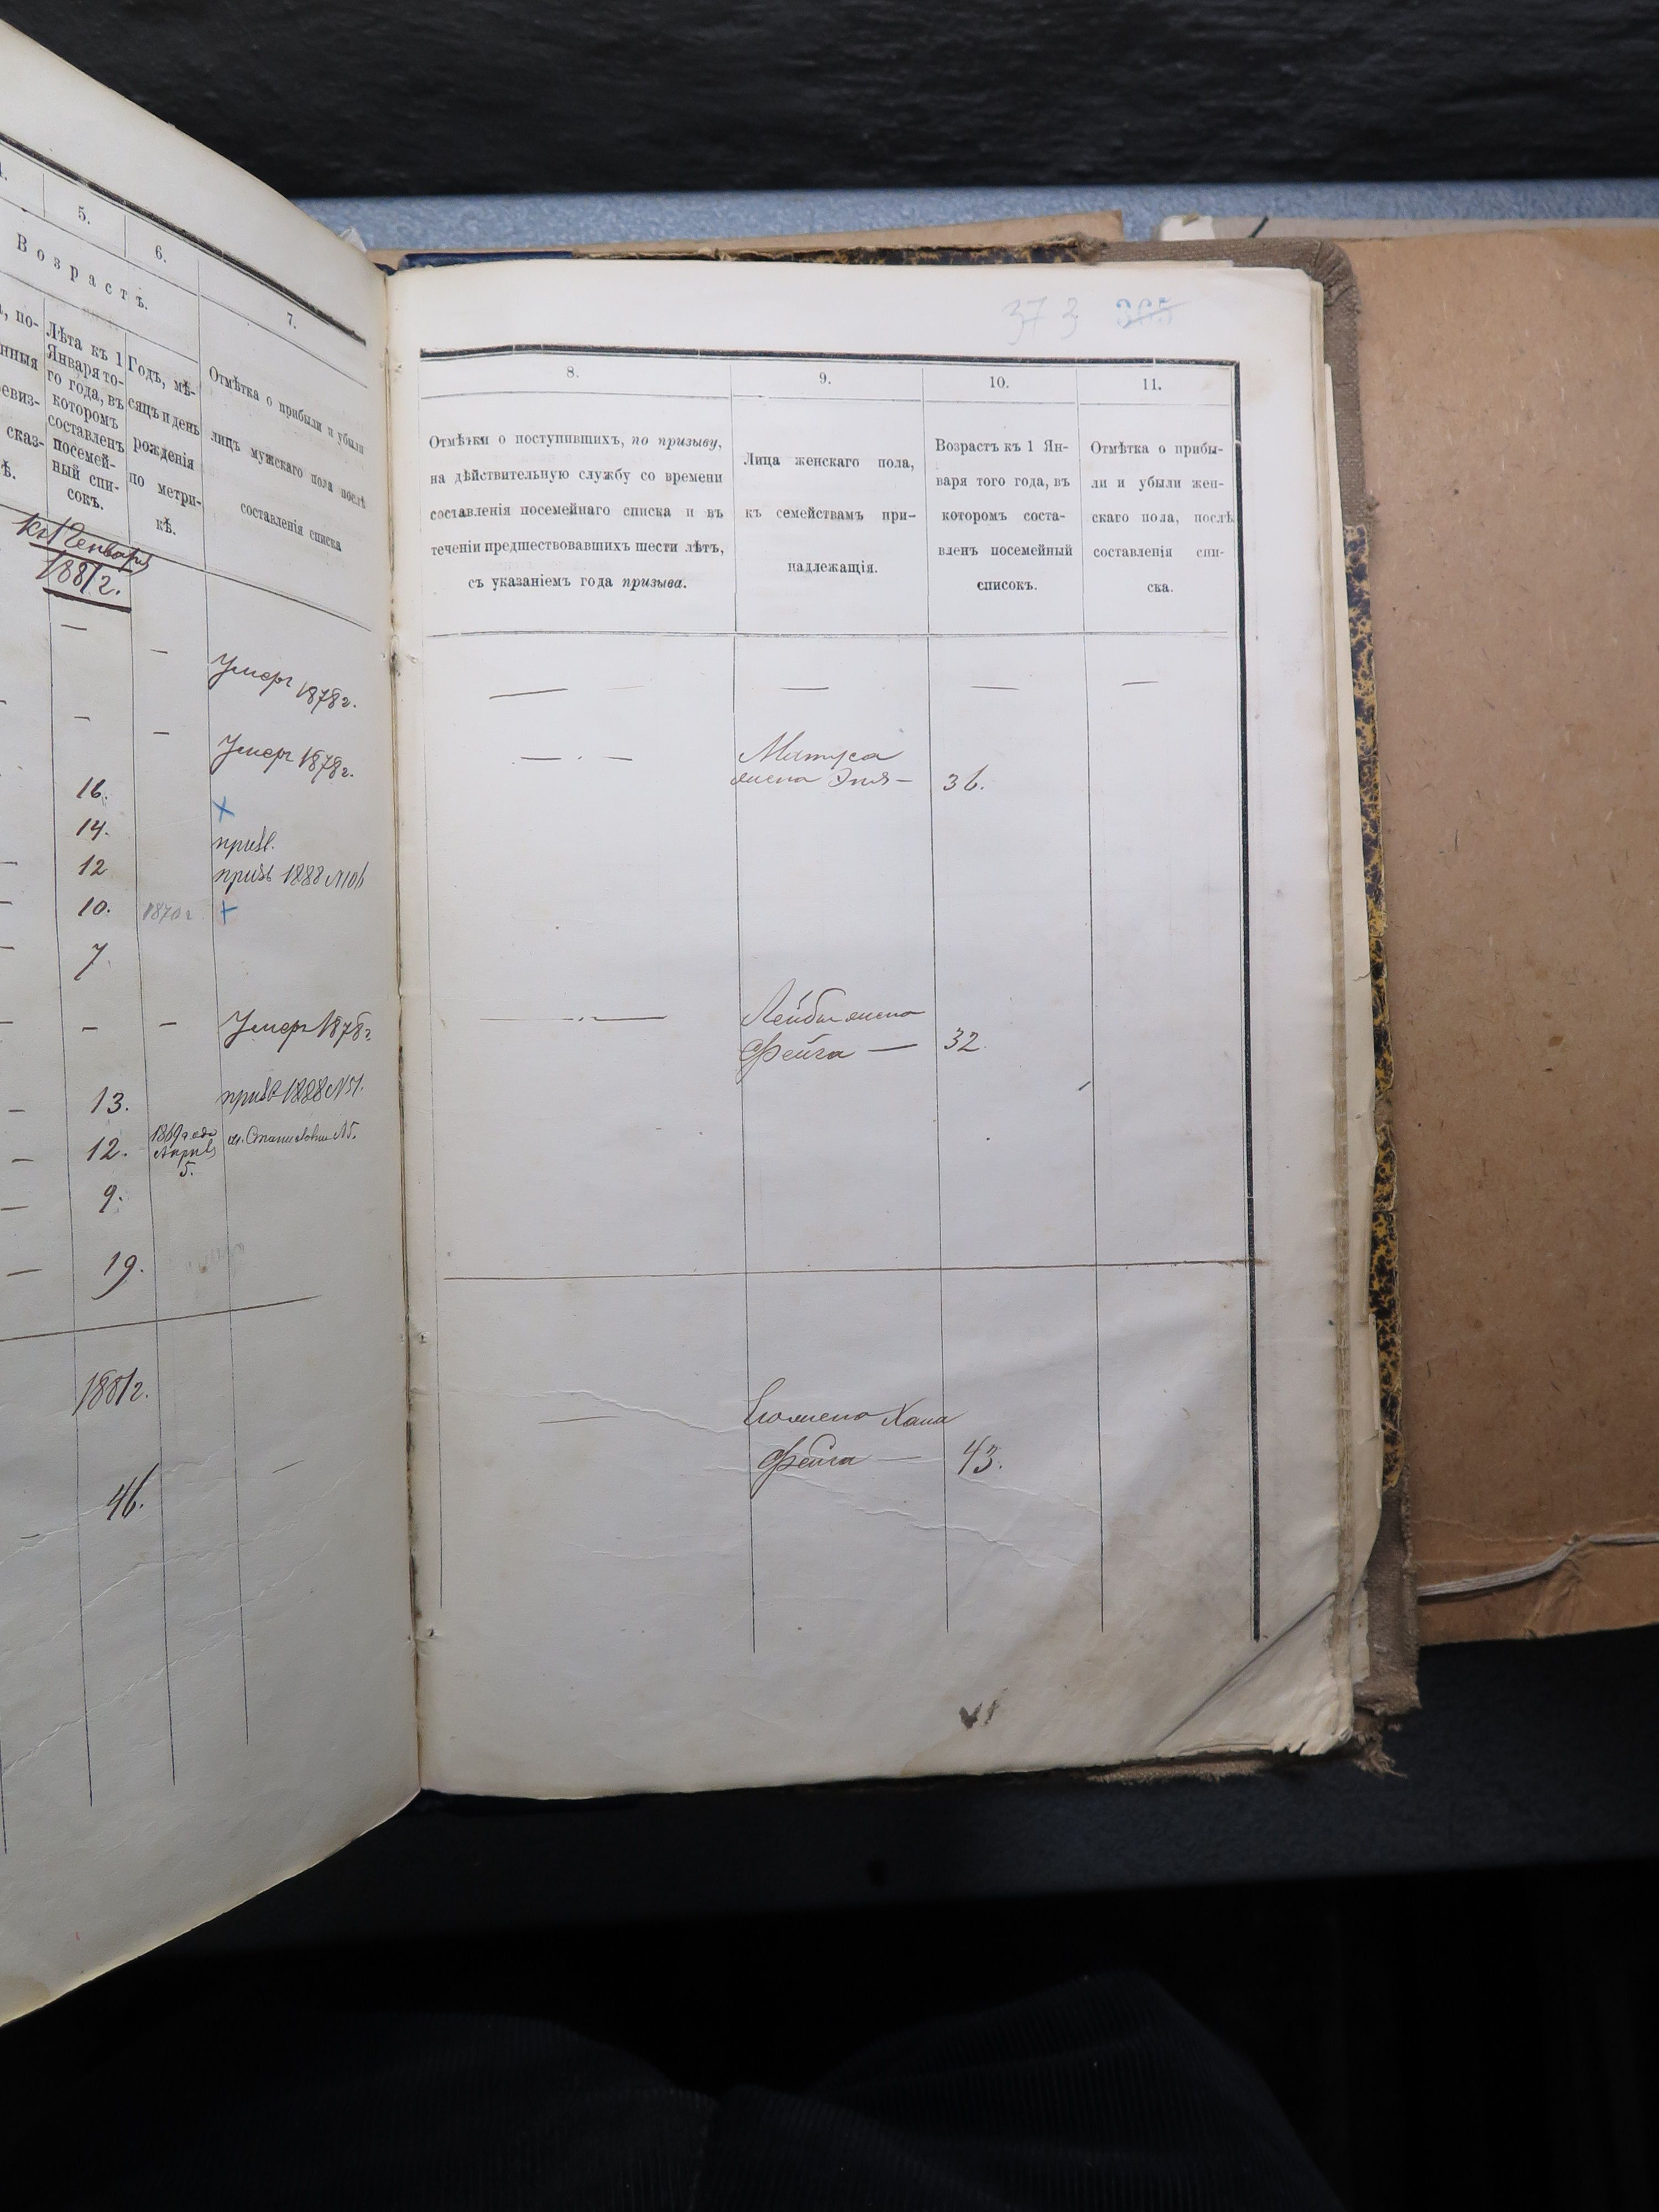 5.
6.
7.
Возрастъ.
, по-
нныя
ревиз-
сказ-
ѣ.
Лѣта къ 1
Января то-
го года, въ
которомъ
составленъ
посемей-
ный спи-
сокъ.
Годъ, мѣ-
сяцъ и день
рожденія
по метри-
кѣ.
Отмѣтка о прибыли и убыли
лицъ мужскаго пола послѣ
составленія списка
1881 г.
—
—
Умеръ 1878 г.
—
—
Умеръ 1878 г.
16.
14.
прив.
12
прив 1888 №106
10.
1870 г
7.
—
—
—
Умеръ 1878 г.
13.
прив 1888 №51.
12.
1869 года
Апрѣль
5.
9.
19.
1881 г.
46.
—
373
365
8.
9.
10.
11.
Отмѣтки о поступившихъ, по призыву,
на дѣйствительную службу со времени
составленія посемейнаго списка и въ
теченіи предшествовавшихъ шести лѣтъ,
съ указаніемъ года призыва.
Лица женскаго пола,
къ семействамъ при-
надлежащія.
Возрастъ къ 1 Ян-
варя того года, въ
которомъ соста-
вленъ посемейный
списокъ.
Отмѣтка о прибы-
ли и убыли жен-
скаго пола, послѣ
составленія спи-
ска.
— — — —
жена — 36.
Лейбы жена
Фейга — 32.
Его жена Хана
Фейга — 43.